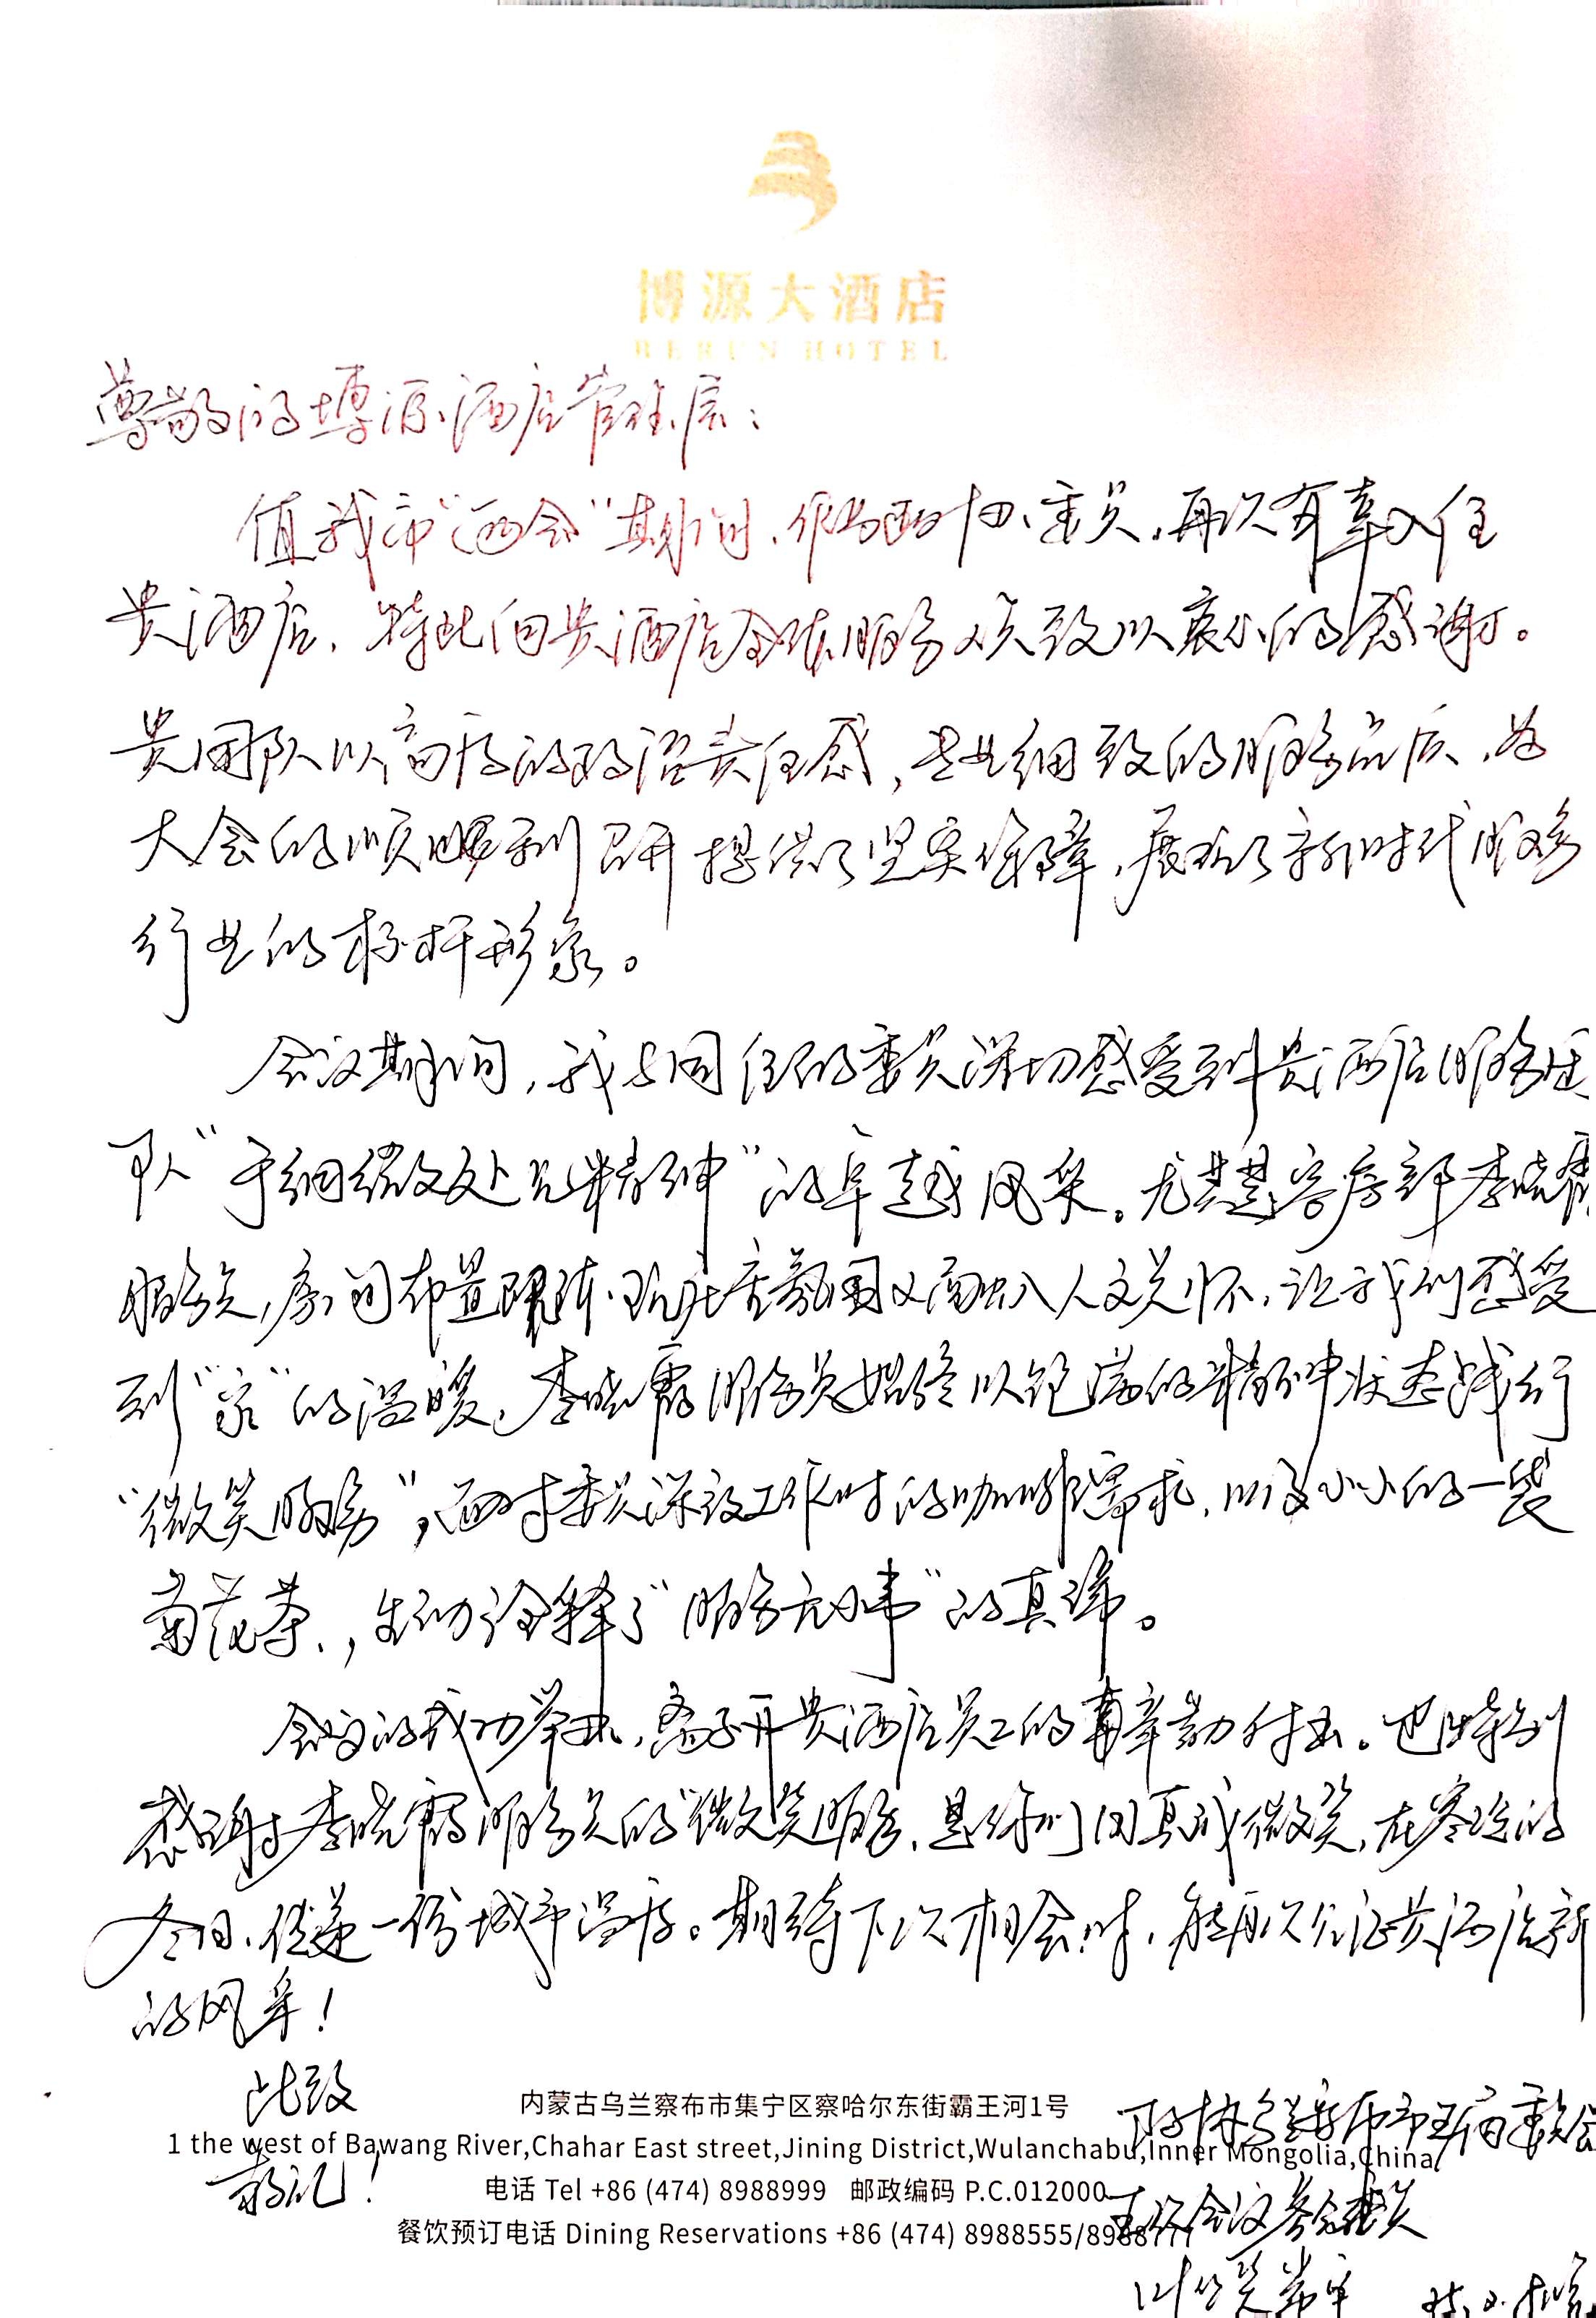 博源大酒店
BERUN HOTEL
尊敬的博源酒店管理层：
值我市“两会”期间，作为政协委员，再次有幸入住
贵酒店，特此向贵酒店全体服务人员致以衷心的感谢。
贵团队以高度的政治责任感，专业细致的服务品质，为
大会的顺利召开提供了坚实保障，展现了新时代服务
行业的标杆形象。
会议期间，我与同住的委员深切感受到贵酒店服务团
队“于细微处见精神”的卓越风采。尤其是客房部李晓霞
服务员，房间布置 氛围又融入人文关怀，让我们感受
到“家”的温暖，李晓霞服务员始终以饱满的精神状态践行
“微笑服务”，面对委员深夜工作时的咖啡需求，以及小小的一袋
菊花茶，生动诠释了“服务无小事”的真谛。
会议的成功举办，离不开贵酒店员工的辛勤付出。也特别
感谢李晓霞服务员的“微笑服务，是你们用真诚微笑，在寒冷的
冬日，传递一份城市温度。期待下次相会时，能再次见证贵酒店新
的风采！
此致
敬礼！
内蒙古乌兰察布市集宁区察哈尔东街霸王河1号
1 the west of Bawang River,Chahar East street,Jining District,Wulanchabu,Inner Mongolia,China
电话 Tel +86 (474) 8988999 邮政编码 P.C.012000
餐饮预订电话 Dining Reservations +86 (474) 8988555/8988777
政协乌兰察布市五届委员会
五次会议参会委员